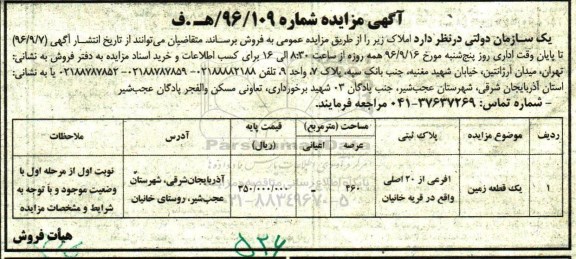 آگهی مزایده شماره ۹۶/۱۰۹/هـ.ف
یک سازمان دولتی درنظر دارد املاک زیر را از طریق مزایده عمومی به فروش برساند. متقاضیان می‌توانند از تاریخ انتشار آگهی (۹۶/۹/۷)
تا پایان وقت اداری روز پنج‌شنبه مورخ ۹۶/۹/۱۶ همه روزه از ساعت ۸:۳۰ الی ۱۶ برای کسب اطلاعات و خرید اسناد مزایده به دفتر فروش به نشانی:
تهران، میدان آرژانتین، خیابان شهید مغنیه، جنب بانک سپه، پلاک ۷، واحد ۹، تلفن ۰۲۱۸۸۸۸۲۱۸۸-۰۲۱۸۸۷۸۷۸۵۹-۰۲۱۸۸۷۸۷۸۵۲ یا به نشانی:
استان آذربایجان شرقی، شهرستان عجب‌شیر، جنب پادگان ۰۳ شهید برخورداری، تعاونی مسکن والفجر پادگان عجب‌شیر
- شماره تماس: ۳۷۶۳۷۲۶۹-۰۴۱ مراجعه فرمایند.
ردیف موضوع مزایده پلاک ثبتی مساحت (مترمربع) قیمت پایه (ریال) آدرس ملاحظات
عرصه اعیانی
۱ یک قطعه زمین ۱فرعی از ۲۰ اصلی واقع در قریه خانیان ۲۶۰ - ۳۵۰/۰۰۰/۰۰۰ آذربایجان‌شرقی، شهرستان عجب‌شیر، روستای خانیان نوبت اول از مرحله اول با وضعیت موجود و با توجه به شرایط و مشخصات مزایده
هیأت فروش
۰۲۱-۸۸۳۴۹۶۷۰-۵
۵۲۶